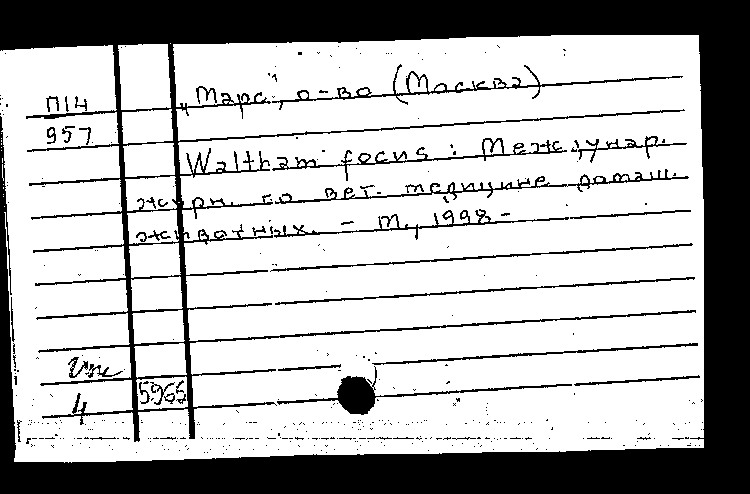 П14
957
„Марс", о-во (Москва)
Waltham focus : Междунар.
журн. по вет. медицине домаш.
животных. – М., 1998 –
4
5965